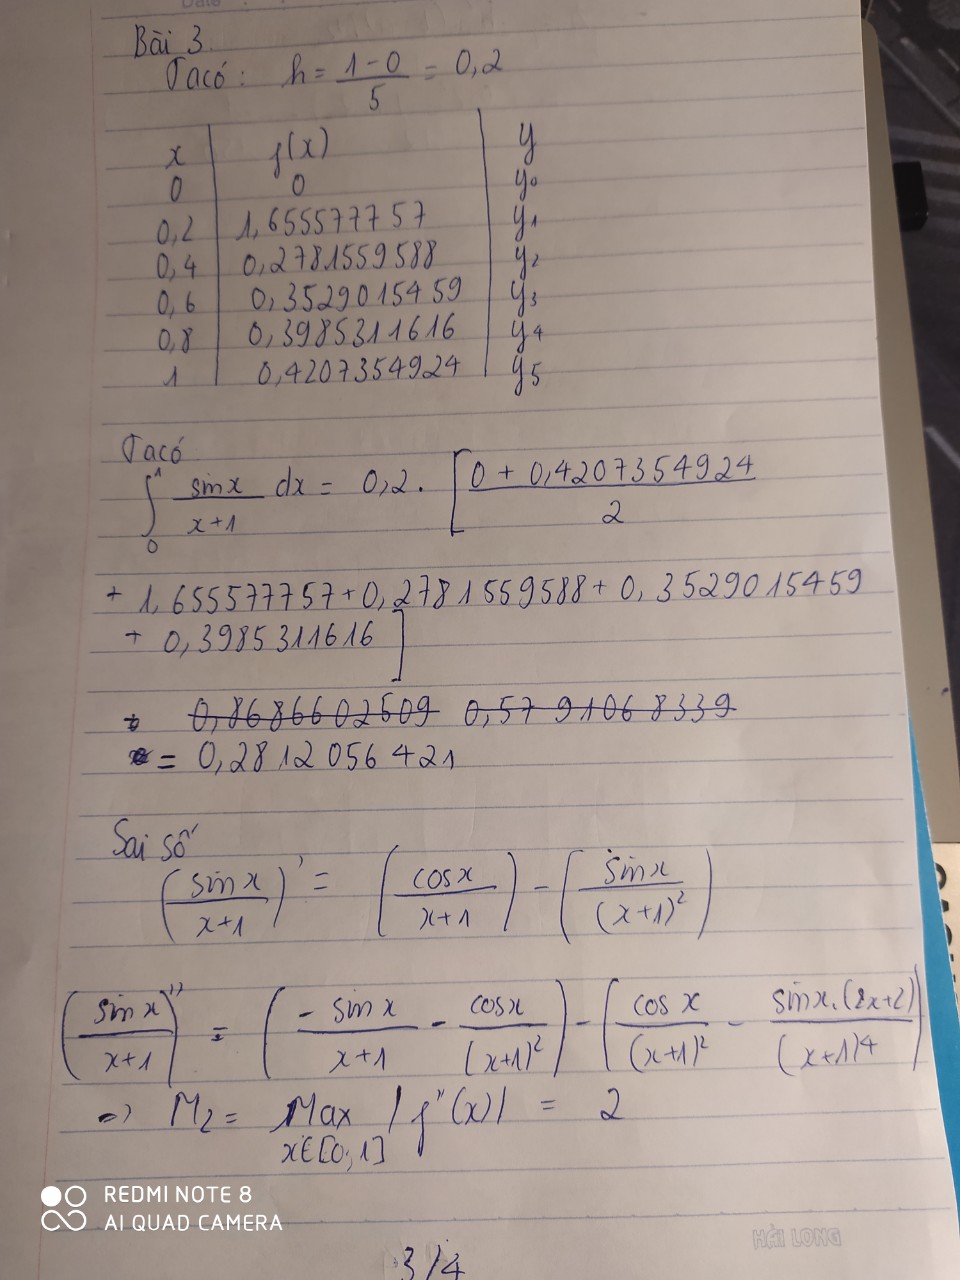 Date
Bài 3
Ta có : h = (1 - 0)/5 = 0,2
x | f(x) | y
0 | 0 | y0
0,2 | 1,655577757 | y1
0,4 | 0,2781559588 | y2
0,6 | 0,3529015459 | y3
0,8 | 0,3985311616 | y4
1 | 0,4207354924 | y5
Ta có
∫₀¹ sinx/(x+1) dx = 0,2 . [ (0 + 0,4207354924)/2
+ 1,655577757 + 0,2781559588 + 0,3529015459
+ 0,3985311616 ]
0,8686602509 0,5791068339
= 0,2812056421
Sai số
(sinx/(x+1))' = (cosx/(x+1)) - (sinx/(x+1)²)
(sinx/(x+1))'' = (- sinx/(x+1) - cosx/(x+1)²) - (cosx/(x+1)² - sinx.(2x+2)/(x+1)4)
=> M2 = Max x∈[0;1] |f''(x)| = 2
REDMI NOTE 8
AI QUAD CAMERA
HẢI LONG
3/4